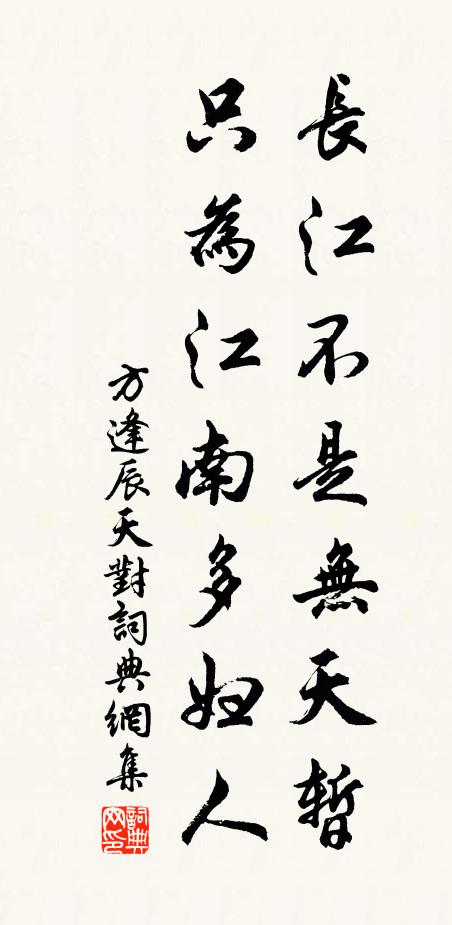 長江不是無天暫
只為江南多妇人
方逢辰天對詞典網集
詞典网印